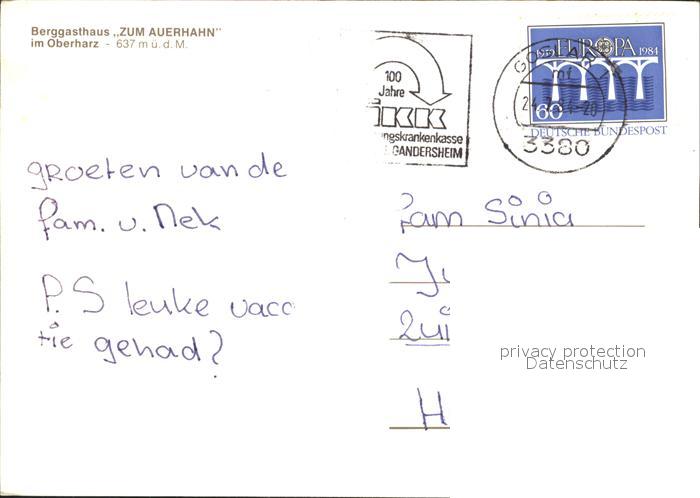 Berggasthaus „ZUM AUERHAHN"
im Oberharz - 637 m ü. d. M.
100
Jahre
IKK
ngskrankenkasse
GANDERSHEIM
GOSLAR
mf
3380
1959 EUROPA 1984
60
DEUTSCHE BUNDESPOST
groeten van de
fam. v. Nek
P.S leuke vacc
tie gehad?
fam Sinia
privacy protection
Datenschutz
H